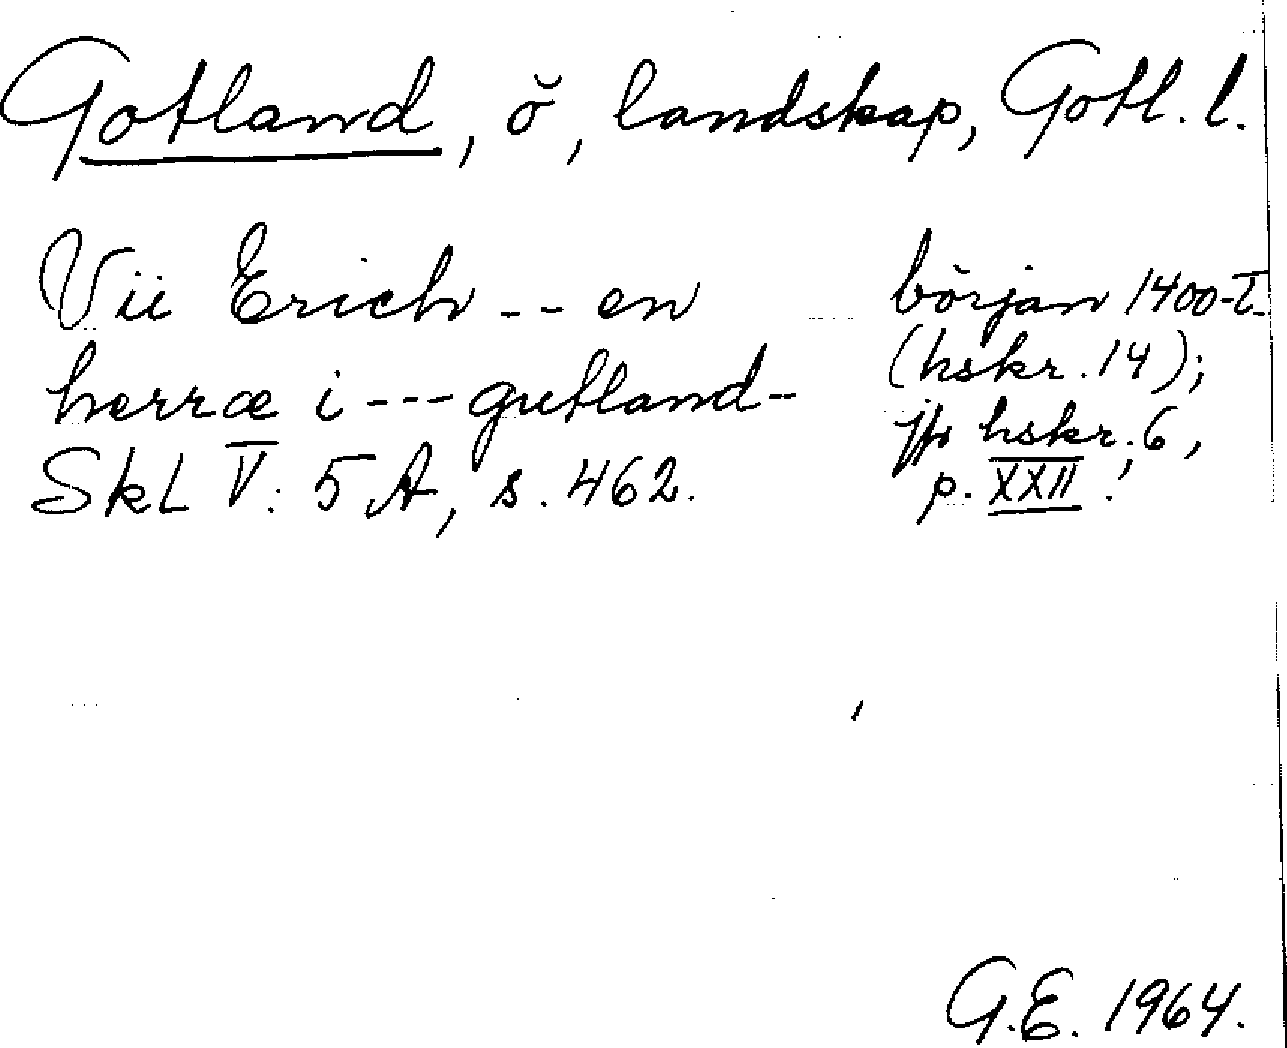 Gotland, ö, landskap, Gotl. l.
Vii Erich -- en
herræ i --- gutland-
SkL V: 5 A, s. 462.
början 1400-t.
(hskr. 14);
jfr hskr. 6,
p. XXII!
G.E. 1964.